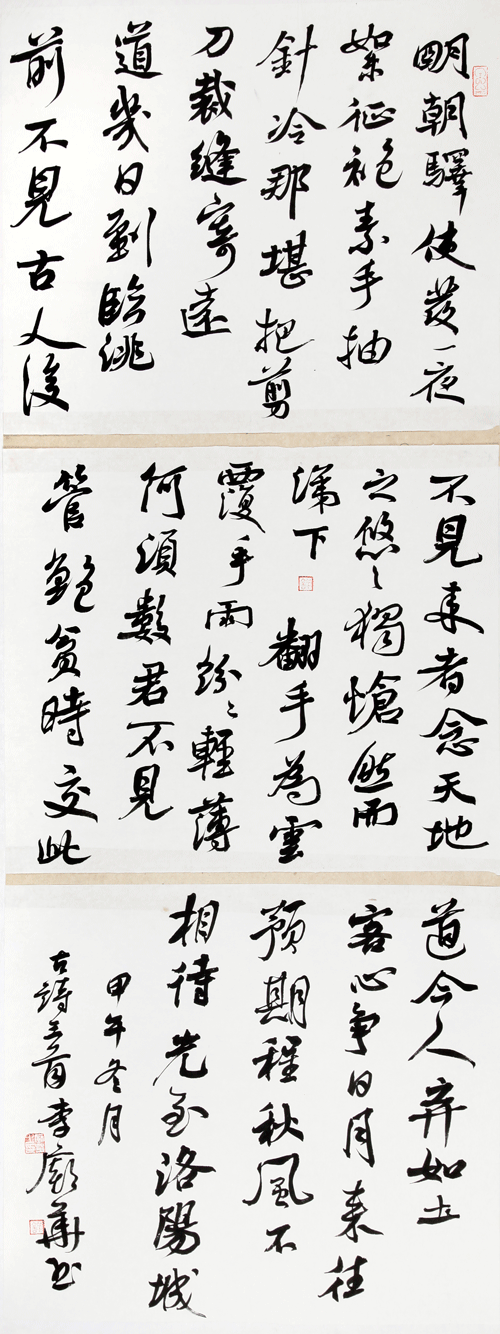 明朝驛使發一夜
絮征袍素手抽
針冷那堪把剪
刀裁縫寄遠
道幾日到臨洮
前不見古人後
不見来者念天地
之悠々獨愴然而
涕下 翻手為雲
覆手雨紛々輕薄
何須數君不見
管鮑貧時交此
道今人弃如土
客心争日月来往
預期程秋風不
相待先至洛陽城
甲午冬月
古詩首李華书